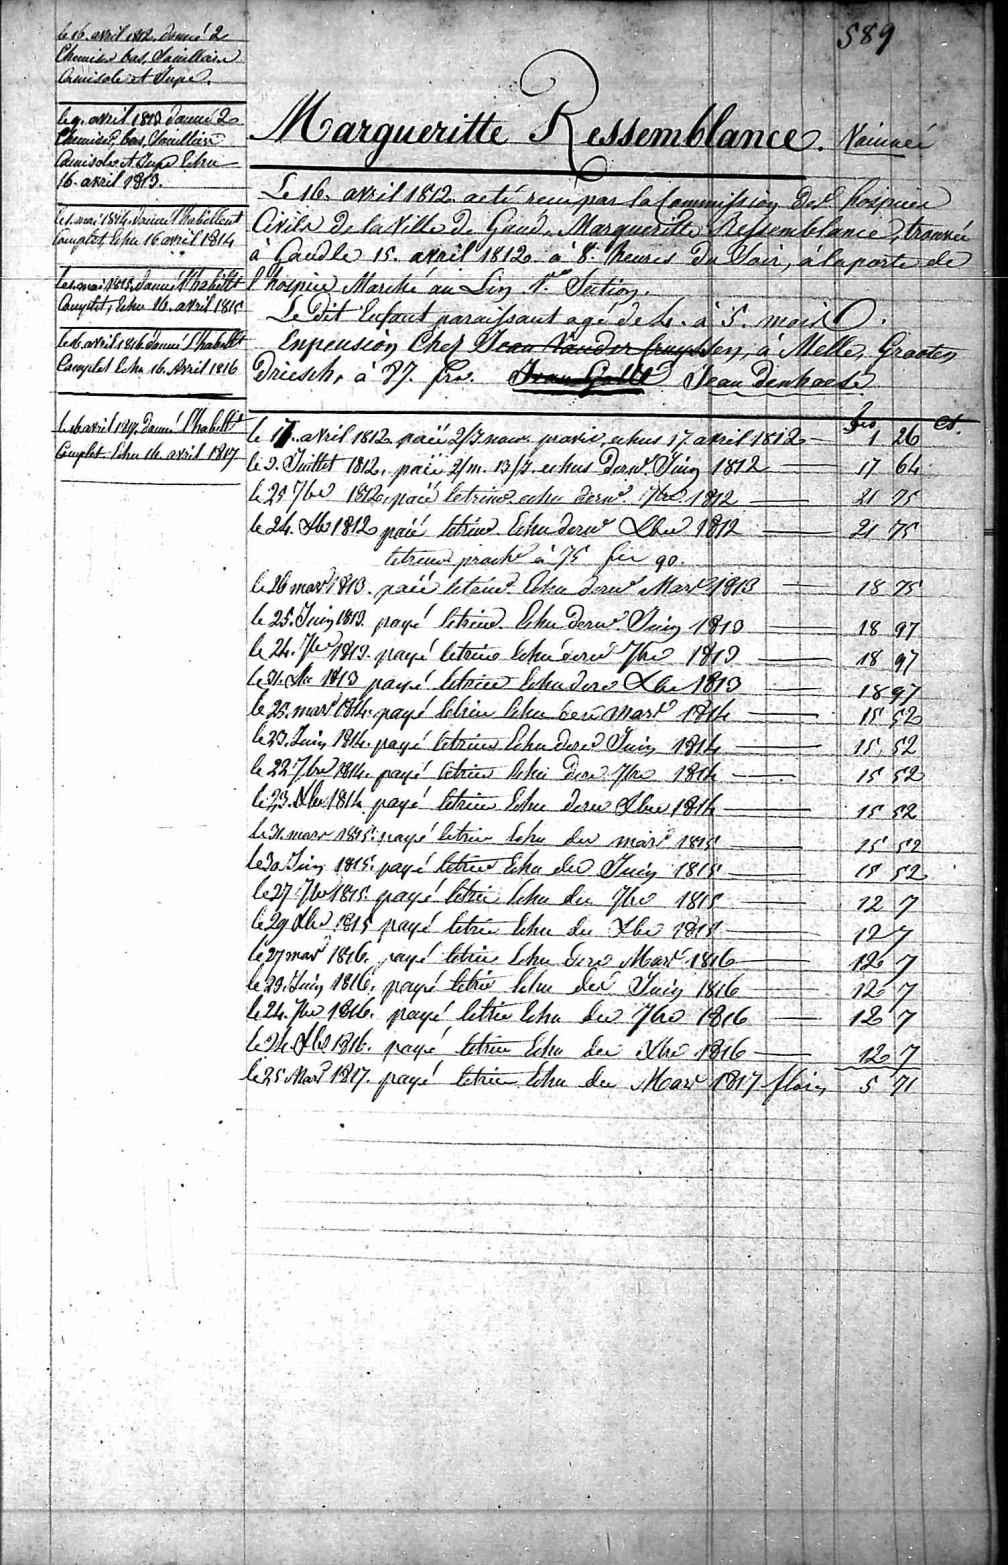 589
le 16. avril 1812. donné 2
Chemises bas,
Camisole et Jupe.
le 9. avril 1813 donné 2
Chemises, bas,
Camisole et Jupe Echu
16. avril 1813.
le 1. mai 1814. donné l'habillent
Complet, Echu 16 avril 1814
le 1. mai 1815. donné l'habillt
Complet, Echu 16. avril 1815
le 16. avril 1816 donné l'habillt
Complet Echu 16. Avril 1816
le 16 avril 1817. donné l'habillt
Complet Echu 16 avril 1817
Margueritte Ressemblance.
Le 16. avril 1812. a été reçu par la Commission des hospices
Civils de la Ville de Gand, Margueritte Ressemblance, trouvée
à Gand le 15. avril 1812. à 8. heures du Soir, à la porte de
l'hospice Marché au Lin 1re Section.
Le dit Enfant paraissant agé de 4. à 5. mois.
Enpension Chez Jean Vander Cruyssen, à Melle, Grooten
Driesch, à 87. frs. Jean Gallé Jean Denhaese
frs ct.
le 17. avril 1812 paié 2/7 echus 17 avril 1812 — 1 26
le 2. Juillet 1812. paié 2/m. 13/j. echus dernr. Juin 1812 — 17 64
le 25 7bre 1812, paié letrime echu dernr. 7bre 1812 — 21 75
le 24. Xbre 1812 paié letrim Echu dernr Xbre 1812 — 21 75
letrim proch à 75 90.
le 26 mars 1813. paié letrim. Echu dernr Mars 1813 — 18 75
le 25. Juin 1813. payé letrim. Echu dernr. Juin 1813 — 18 97
le 24. 7bre 1813. payé letrim Echu dernr 7bre 1813 — 18 97
le 31. Xbre 1813 payé letrim Echu dernr Xbre 1813 — 18 97
le 25. mars 1814. payé letrim Echu dern mars 1814 — 15 52
le 23. Juin 1814. payé letrim Echu dernr Juin 1814 — 15 52
le 22 7bre 1814. payé letrim Echu dernr 7bre 1814 — 15 52
le 23. Xbre 1814 payé letrim Echu dernr Xbre 1814 — 15 52
le 31. mars 1815. payé letrim Echu der mars 1815 — 15 52
le 30 Juin 1815. payé letrim Echu der Juin 1815 — 15 52
le 27 7bre 1815. payé letrim Echu der 7bre 1815 — 12 7
le 29 Xbre 1815 payé letrim Echu der Xbre 1815 — 12 7
le 27 mars 1816. payé letrim Echu dernr Mars 1816 — 12 7
le 29. Juin 1816. payé letrim Echu der Juin 1816 — 12 7
le 24. 7bre 1816. payé letrim Echu der 7bre 1816 — 12 7
le 24. Xbre 1816. payé letrim Echu der Xbre 1816 — 12 7
le 25 Mars 1817. payé letrim Echu der Mars 1817 florin 5 71